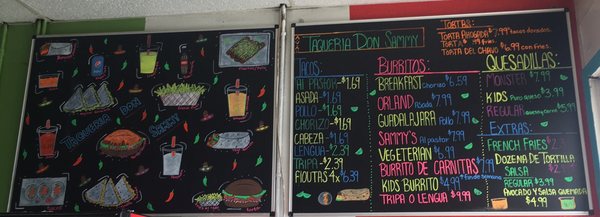 TAQUERIA DON SAMMY
TAQUERIA DON SAMMY
TORTAS:
TORTA AHOGADA $7.99 tacos dorados
TORTA $7.99 fries
TORTA DEL CHAVO $6.99 con fries
TACOS
AL PASTOR-$1.69
ASADA-$1.69
POLLO-$1.69
CHORIZO-$1.69
CABEZA-$1.69
LENGUA-$2.39
TRIPA-$2.39
FLOUTAS 4x$6.39
BURRITOS
BREAKFAST Chorizo $6.59
ORLAND Asada $7.99
GUADALAJARA Pollo $7.99
SAMMY'S Al pastor $7.99
VEGETERIAN $6.99
BURRITO DE CARNITAS $7.99
KIDS BURRITO $4.99
TRIPA O LENGUA $9.99
QUESADILLAS
MONSTER $7.99
KIDS Puro queso $3.99
REGULAR
EXTRAS:
FRENCH FRIES
DOZENA DE TORTILLA
SALSA
REGULAR $3.99
AVOCADO Y SALSA QUEMADA
$4.99 $4.99